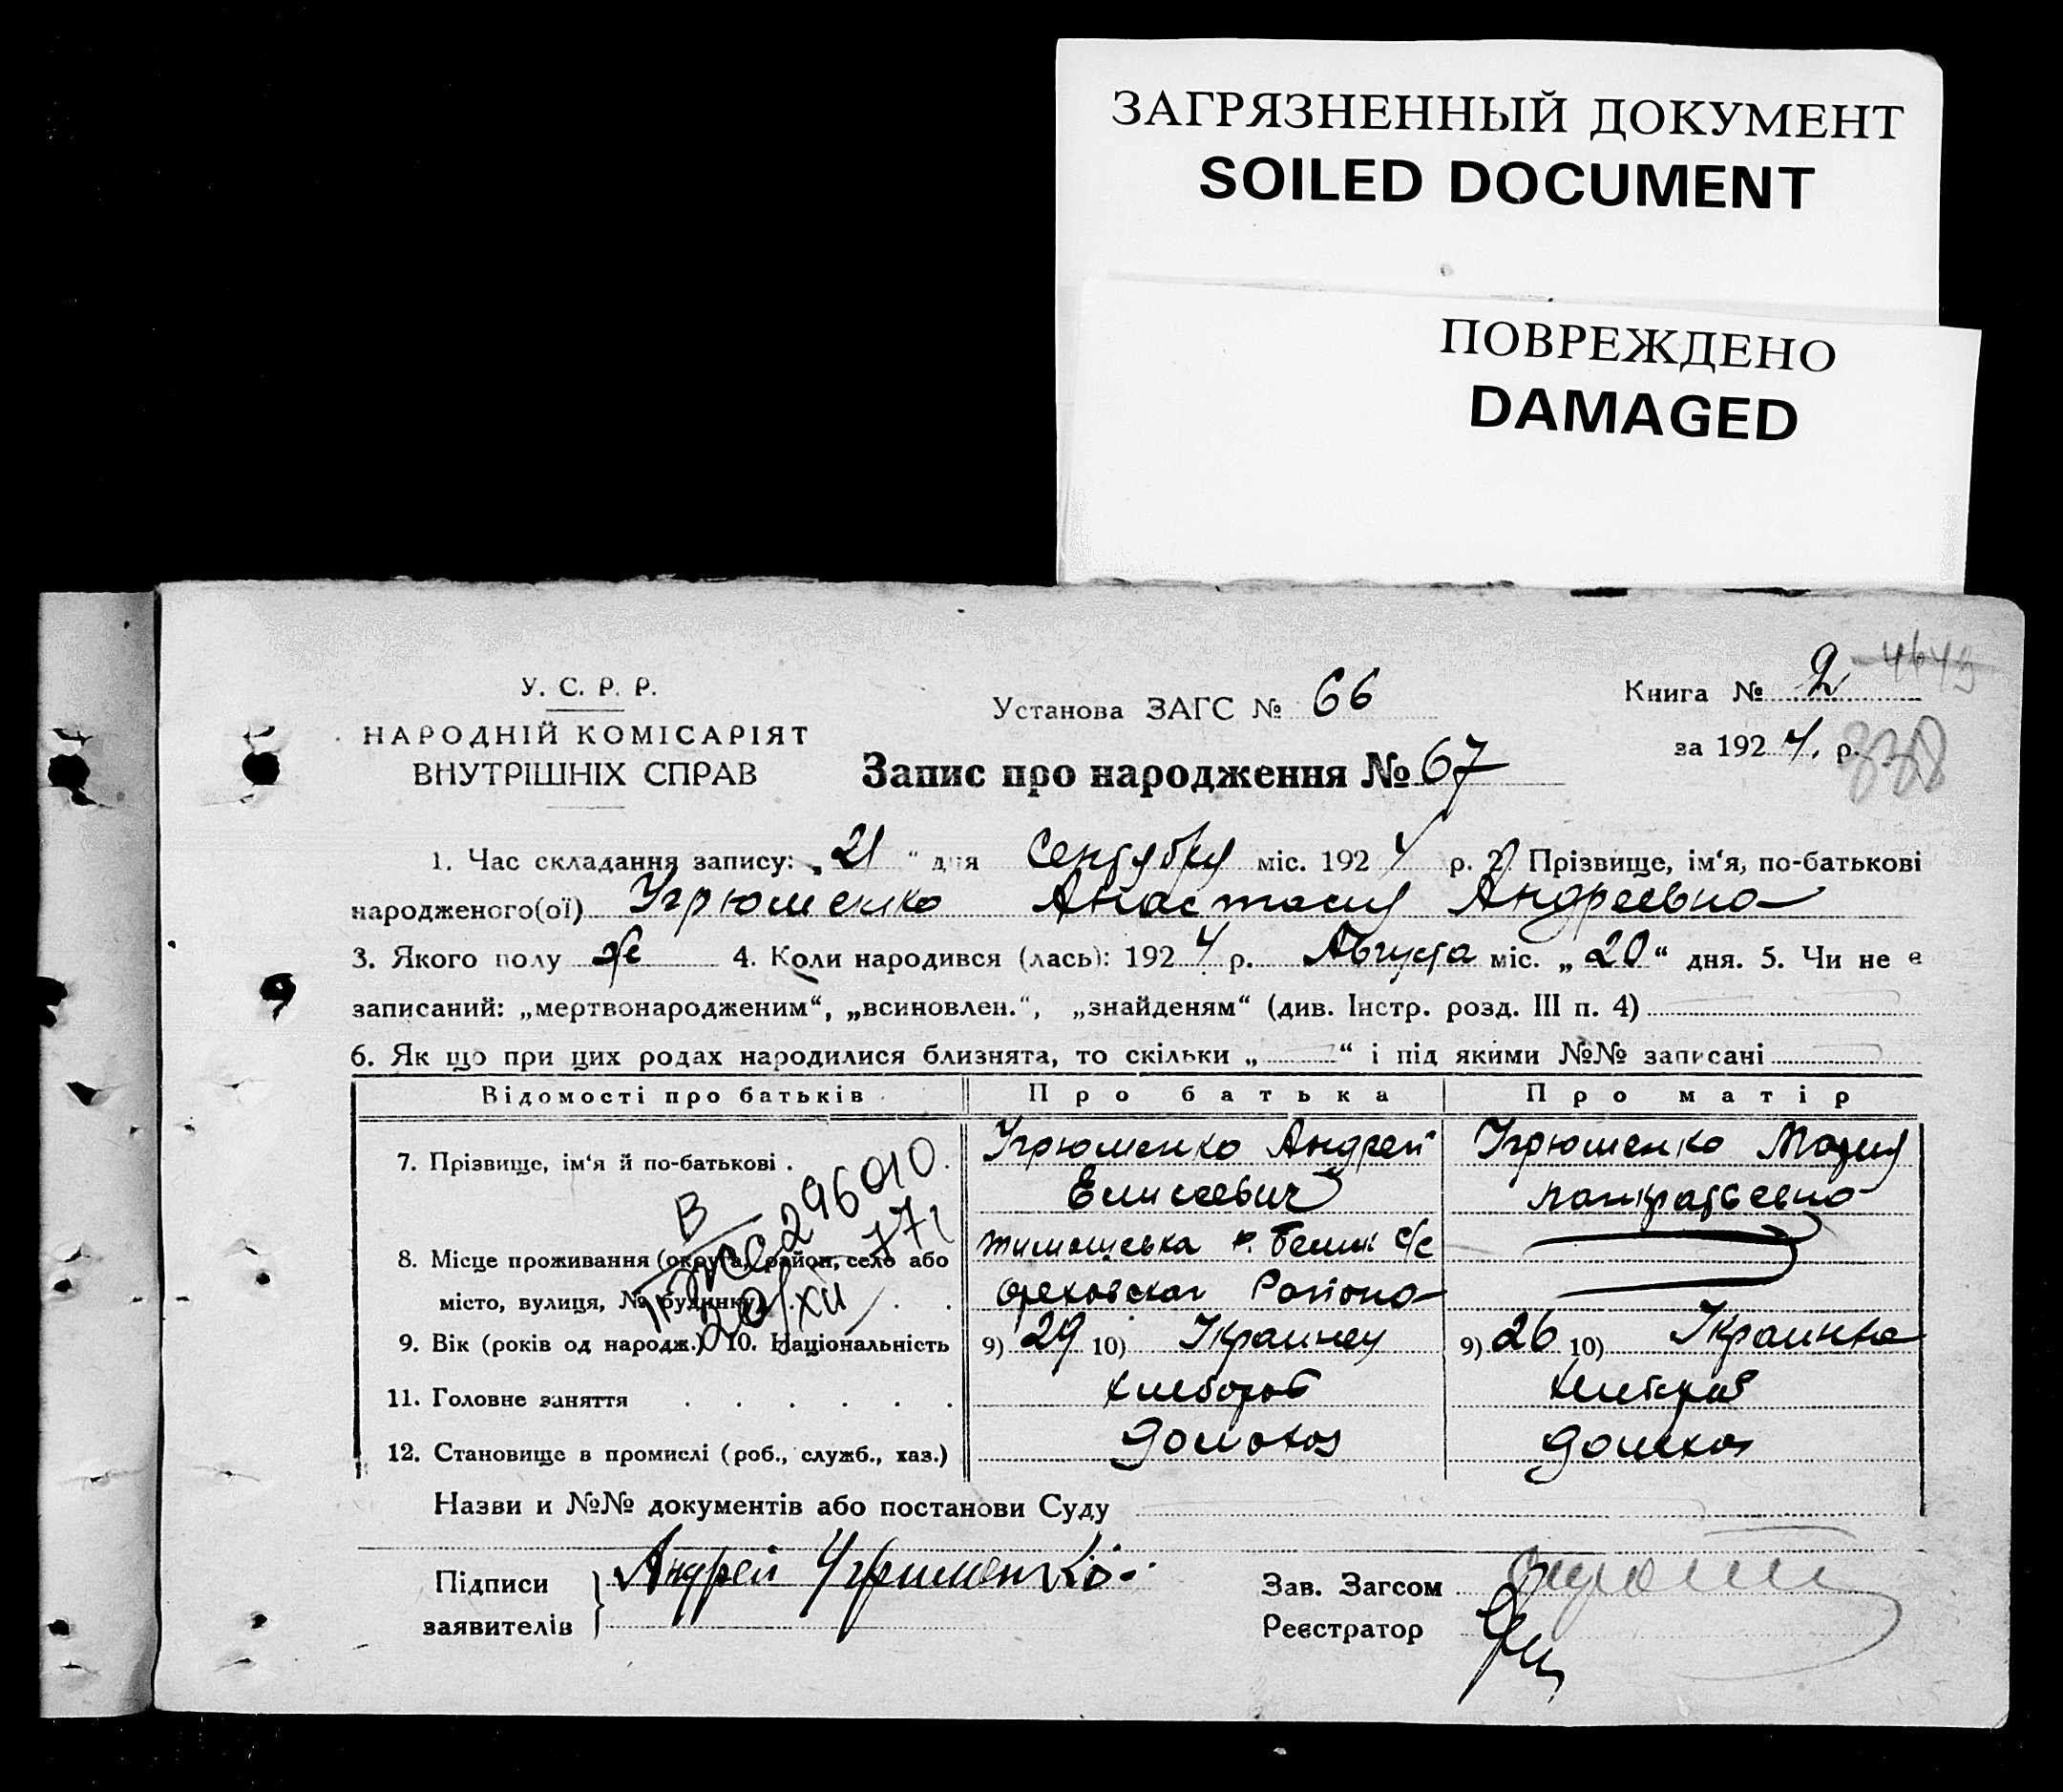 ЗАГРЯЗНЕННЫЙ ДОКУМЕНТ
SOILED DOCUMENT
ПОВРЕЖДЕНО
DAMAGED
У. С. Р. Р.
НАРОДНІЙ КОМІСАРІЯТ
ВНУТРІШНІХ СПРАВ
Установа ЗАГС № 66
Запис про народження № 67
Книга № 2 4649
за 1924. р. 838
1. Час складання запису: „21“ дня Сентября міс. 1924 р. 2. Прізвище, ім‘я, по-батькові
народженого(ої) Угрюменко Анастасия Андреевна
3. Якого полу же 4. Коли народився (лась): 1924 р. Августа міс. „20“ дня. 5. Чи не е
записаний: „мертвонародженим“, „всиновлен.“, „знайденям“ (див. Інстр. розд. III п. 4)
6. Як що при цих родах народилися близнята, то скільки „ “ і під якими №№ записані
Відомості про батьків Про батька Про матір
7. Прізвище, ім‘я й по-батькові . Угрюменко Андрей Елисеевич Угрюменко Мария Панкратьевна
В 296010 771
20/XII
8. Місце проживання (округа, район, село або
місто, вулиця, № будинку) . . . Тимошевка р. Белик с/с
Ореховская Района
9. Вік (років од народж.) 10. Національність 9) 29 10) Украинец 9) 26 10) Украинка
11. Головне заняття . . . . . . Хлебороб
12. Становище в промислі (роб., служб., хаз.) домохоз домохоз
Назви и №№ документів або постанови Суду
Підписи
заявителів } Андрей Угрименко
Зав. Загсом
Реєстратор